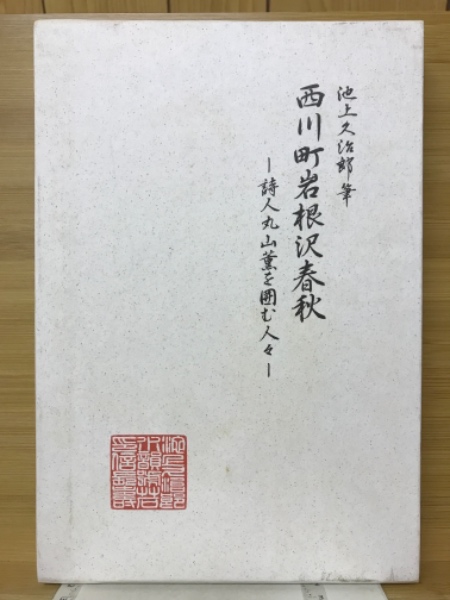 池上久治郎筆
西川町岩根沢春秋
―詩人丸山薫を囲む人々―